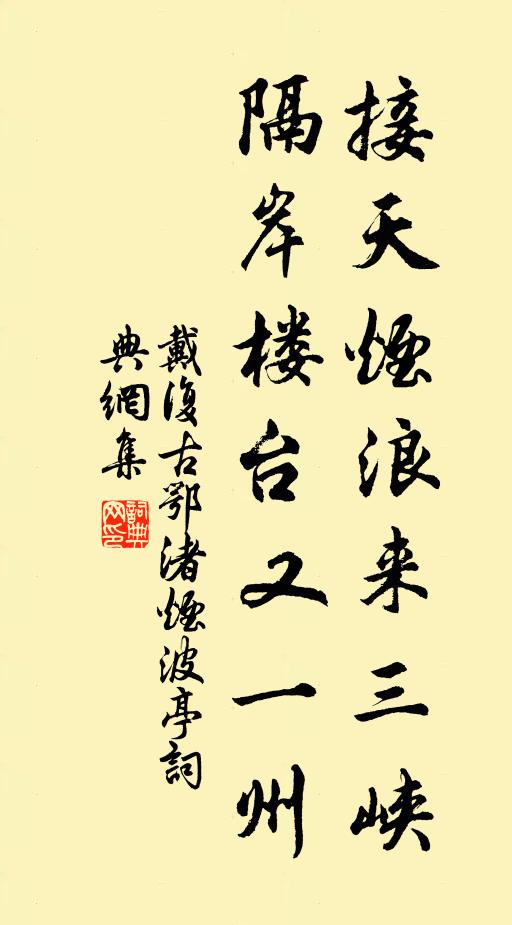 接天煙浪来三峡
隔岸楼台又一州
戴復古鄂渚煙波亭詞
典網集
詞典网印